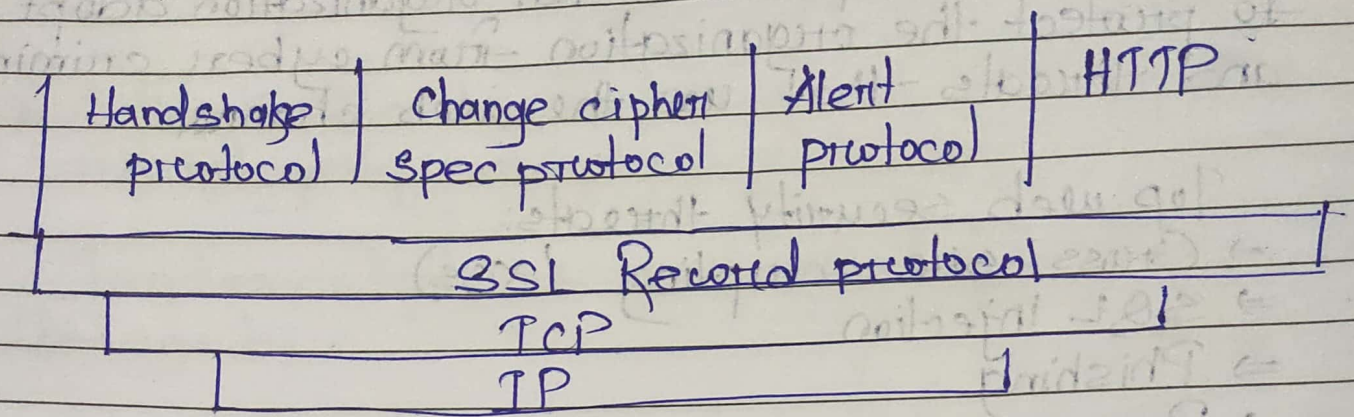 Handshake protocol
Change cipher spec protocol
Alert protocol
HTTP
SSL Record protocol
TCP
IP